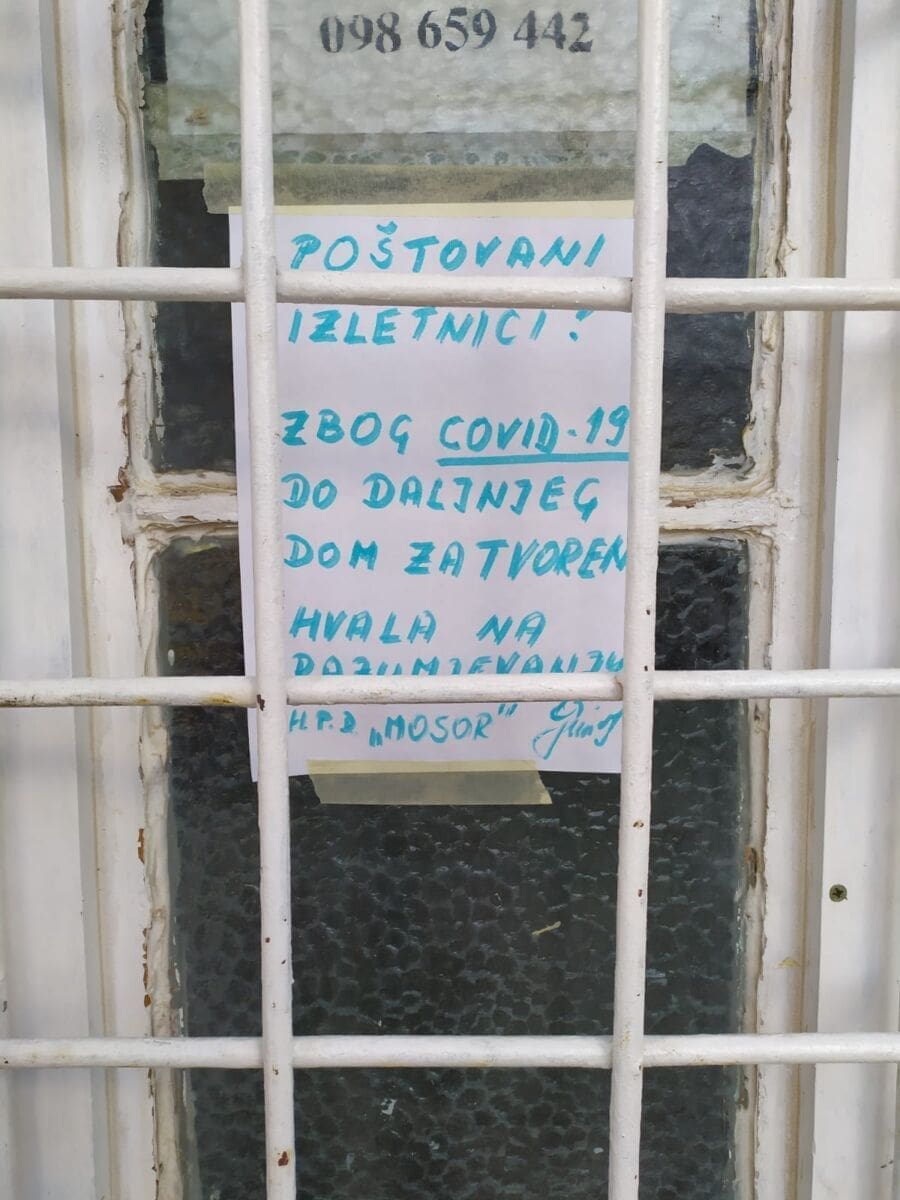 098 659 442
POŠTOVANI
IZLETNICI!
ZBOG COVID-19
DO DALJNJEG
DOM ZATVOREN
HVALA NA
RAZUMIJEVANJU
H.P.D. „MOSOR"